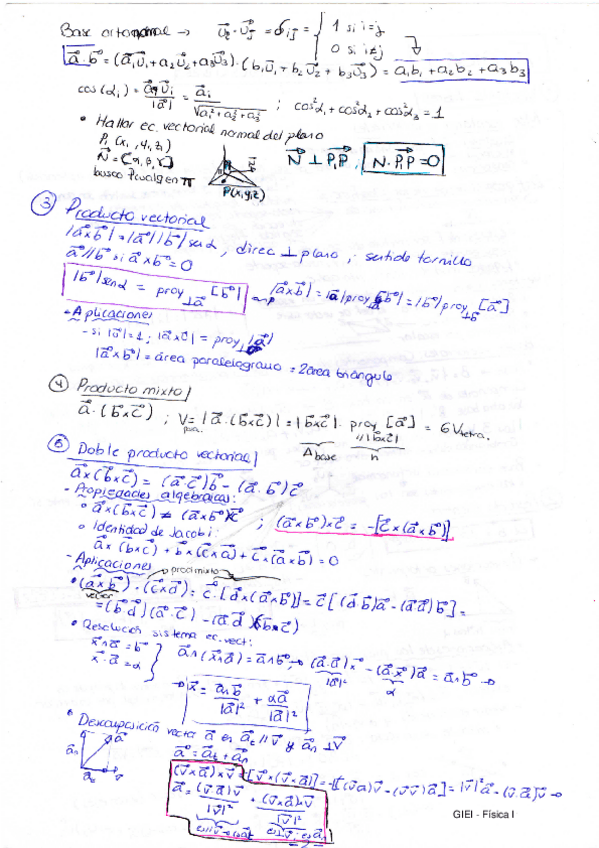 Base ortonormal → u⃗i · u⃗j = δij = { 1 si i=j
0 si i≠j
a⃗ · b⃗ = (a1u⃗1 + a2u⃗2 + a3u⃗3) · (b1u⃗1 + b2u⃗2 + b3u⃗3) = a1b1 + a2b2 + a3b3
cos(αi) = a⃗u⃗i / |a⃗| = ai / √(a1² + a2² + a3²) ; cos²α1 + cos²α2 + cos²α3 = 1
• Hallar ec. vectorial normal del plano
P1 (x1, y1, z1)
N⃗ = (α, β, γ)
busco P cualq en π
P(x,y,z)
N⃗ ⊥ P1P, N⃗ · P1P = 0
③ Producto vectorial
|a⃗×b⃗| = |a⃗||b⃗| senα, direc ⊥ plano, sentido tornillo
a⃗ // b⃗ si a⃗×b⃗ = 0
|b⃗| senα = proy⊥a⃗ [b⃗] → |a⃗×b⃗| = |a⃗| proy⊥a⃗ [b⃗] = |b⃗| proy⊥b⃗ [a⃗]
- Aplicaciones
|a⃗×b⃗| = área paralelogramo = 2 área triángulo
④ Producto mixto
a⃗ · (b⃗×c⃗) ; V = |a⃗ · (b⃗×c⃗)| = |b⃗×c⃗| · proy // |b×c| [a⃗] = 6 Vtetra.
Abase h
⑤ Doble producto vectorial
a⃗×(b⃗×c⃗) = (a⃗·c⃗)b⃗ - (a⃗·b⃗)c⃗
- Propiedades algebraicas:
• a⃗×(b⃗×c⃗) ≠ (a⃗×b⃗)×c⃗ ; (a⃗×b⃗)×c⃗ = -[c⃗×(a⃗×b⃗)]
○ Identidad de Jacobi:
a⃗×(b×c) + b×(c⃗×a⃗) + c⃗×(a⃗×b) = 0
- Aplicaciones
prod mixto
• (a⃗×b⃗) · (c⃗×d⃗) = c⃗ · [d⃗×(a⃗×b⃗)] = c⃗[(d⃗·b⃗)a⃗ - (d⃗·a⃗)b⃗] =
vector
= (b⃗·d⃗)(a⃗·c⃗) - (a⃗·d⃗)(b⃗·c⃗)
• Resolución sistema ec. vect:
x⃗∧a⃗ = b⃗
x⃗·a⃗ = α
a⃗∧(x⃗∧a⃗) = a⃗∧b⃗ → (a⃗·a⃗)x⃗ - (a⃗·x⃗)a⃗ = a⃗∧b⃗ →
|a⃗|² α
→ x⃗ = a⃗∧b⃗ / |a⃗|² + αa⃗ / |a⃗|²
• Descomposición vector a⃗ en a⃗t // v⃗ y a⃗n ⊥ v⃗
a⃗ = a⃗t + a⃗n
(v⃗×a⃗)×v⃗ = -[v⃗×(v⃗×a⃗)] = -[(v⃗·a⃗)v⃗ - (v⃗·v⃗)a⃗] = |v⃗|²a⃗ - (v⃗·a⃗)v⃗ →
a⃗ = (v⃗·a⃗)v⃗ / |v⃗|² + (v⃗×a⃗)×v⃗ / |v⃗|²
GIEI - Física I